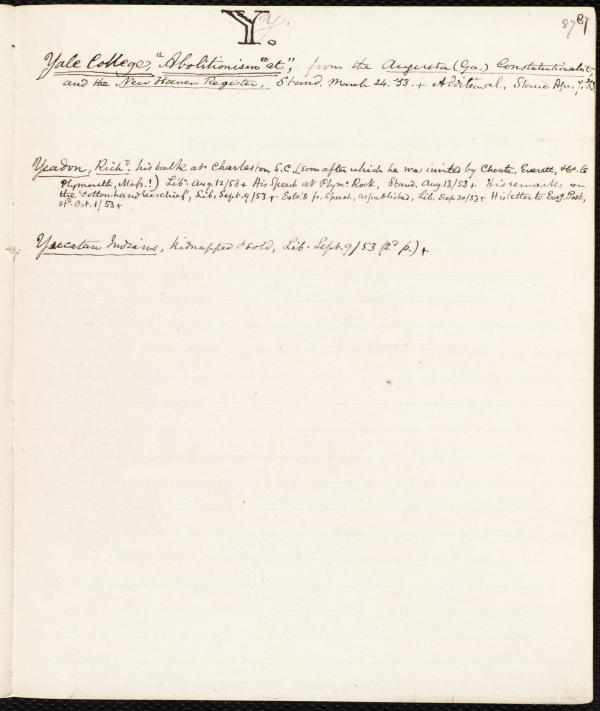 Y.
87 87
Yale College, "Abolitionism" at", from the Augusta (Ga.) Constitutionalist,
and the New Haven Register, Stand. March 24. '53. + Additional, Stand. Apr. 7. '53
Yeadon, Richd. his talk at Charleston S.C. (soon after which he was invited by Choate, Everett, &c. to
Plymouth, Mass.!) Lib. Aug. 12/53 + His Speech at Plymc. Rock, Stand. Aug. 13/53 + His remarks on
the Cotton hand kerchief, Lib. Sept. 9/53 + fr. Speech, as published, Lib. Sep. 30/53 + His letter to Evg. Post,
Oct. 1/53 +
Yucatan Indians, kidnapped & sold, Lib. Sept. 9/53 (2d p.) +